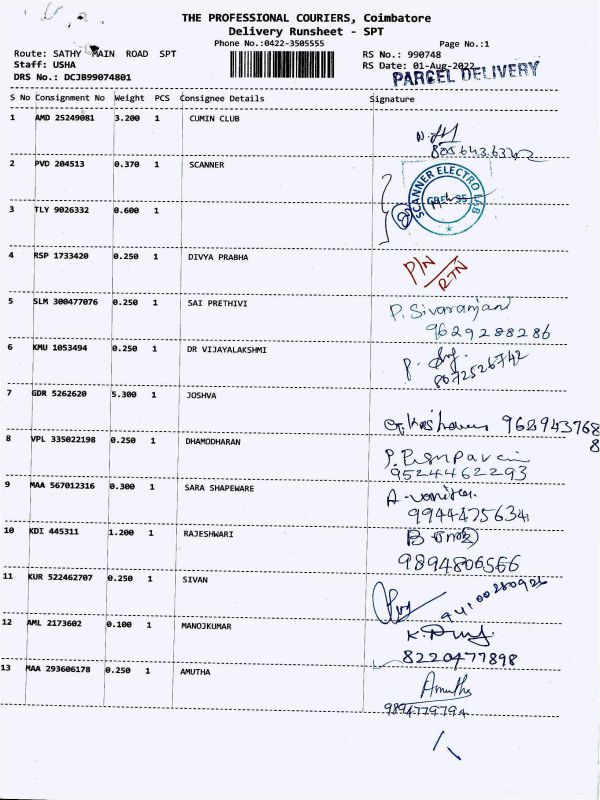 THE PROFESSIONAL COURIERS, Coimbatore
Delivery Runsheet - SPT
Phone No.:0422-3505555 Page No.:1
Route: SATHY MAIN ROAD SPT RS No.: 990748
Staff: USHA RS Date: 01-Aug-2022
DRS No.: DCJB99074801 PARCEL DELIVERY
S No Consignment No Weight PCS Consignee Details Signature
1 AMD 25249081 3.200 1 CUMIN CLUB
8056436342
2 PVD 204513 0.370 1 SCANNER
SCANNER ELECTRO LAB
3 TLY 9026332 0.600 1
4 RSP 1733420 0.250 1 DIVYA PRABHA P/N
RTN
5 SLM 300477076 0.250 1 SAI PRETHIVI P. Sivaranjani
9629288286
6 KMU 1053494 0.250 1 DR VIJAYALAKSHMI
8072526742
7 GDR 5262620 5.300 1 JOSHVA
9689437688
8 VPL 335022198 0.250 1 DHAMODHARAN
9524462293
9 MAA 567012316 0.300 1 SARA SHAPEWARE A. vanitha
9944475634
10 KDI 445311 1.200 1 RAJESHWARI
9894806566
11 KUR 522462707 0.250 1 SIVAN
12 AML 2173602 0.100 1 MANOJKUMAR
8220477898
13 MAA 293606178 0.250 1 AMUTHA Amutha
9894779794